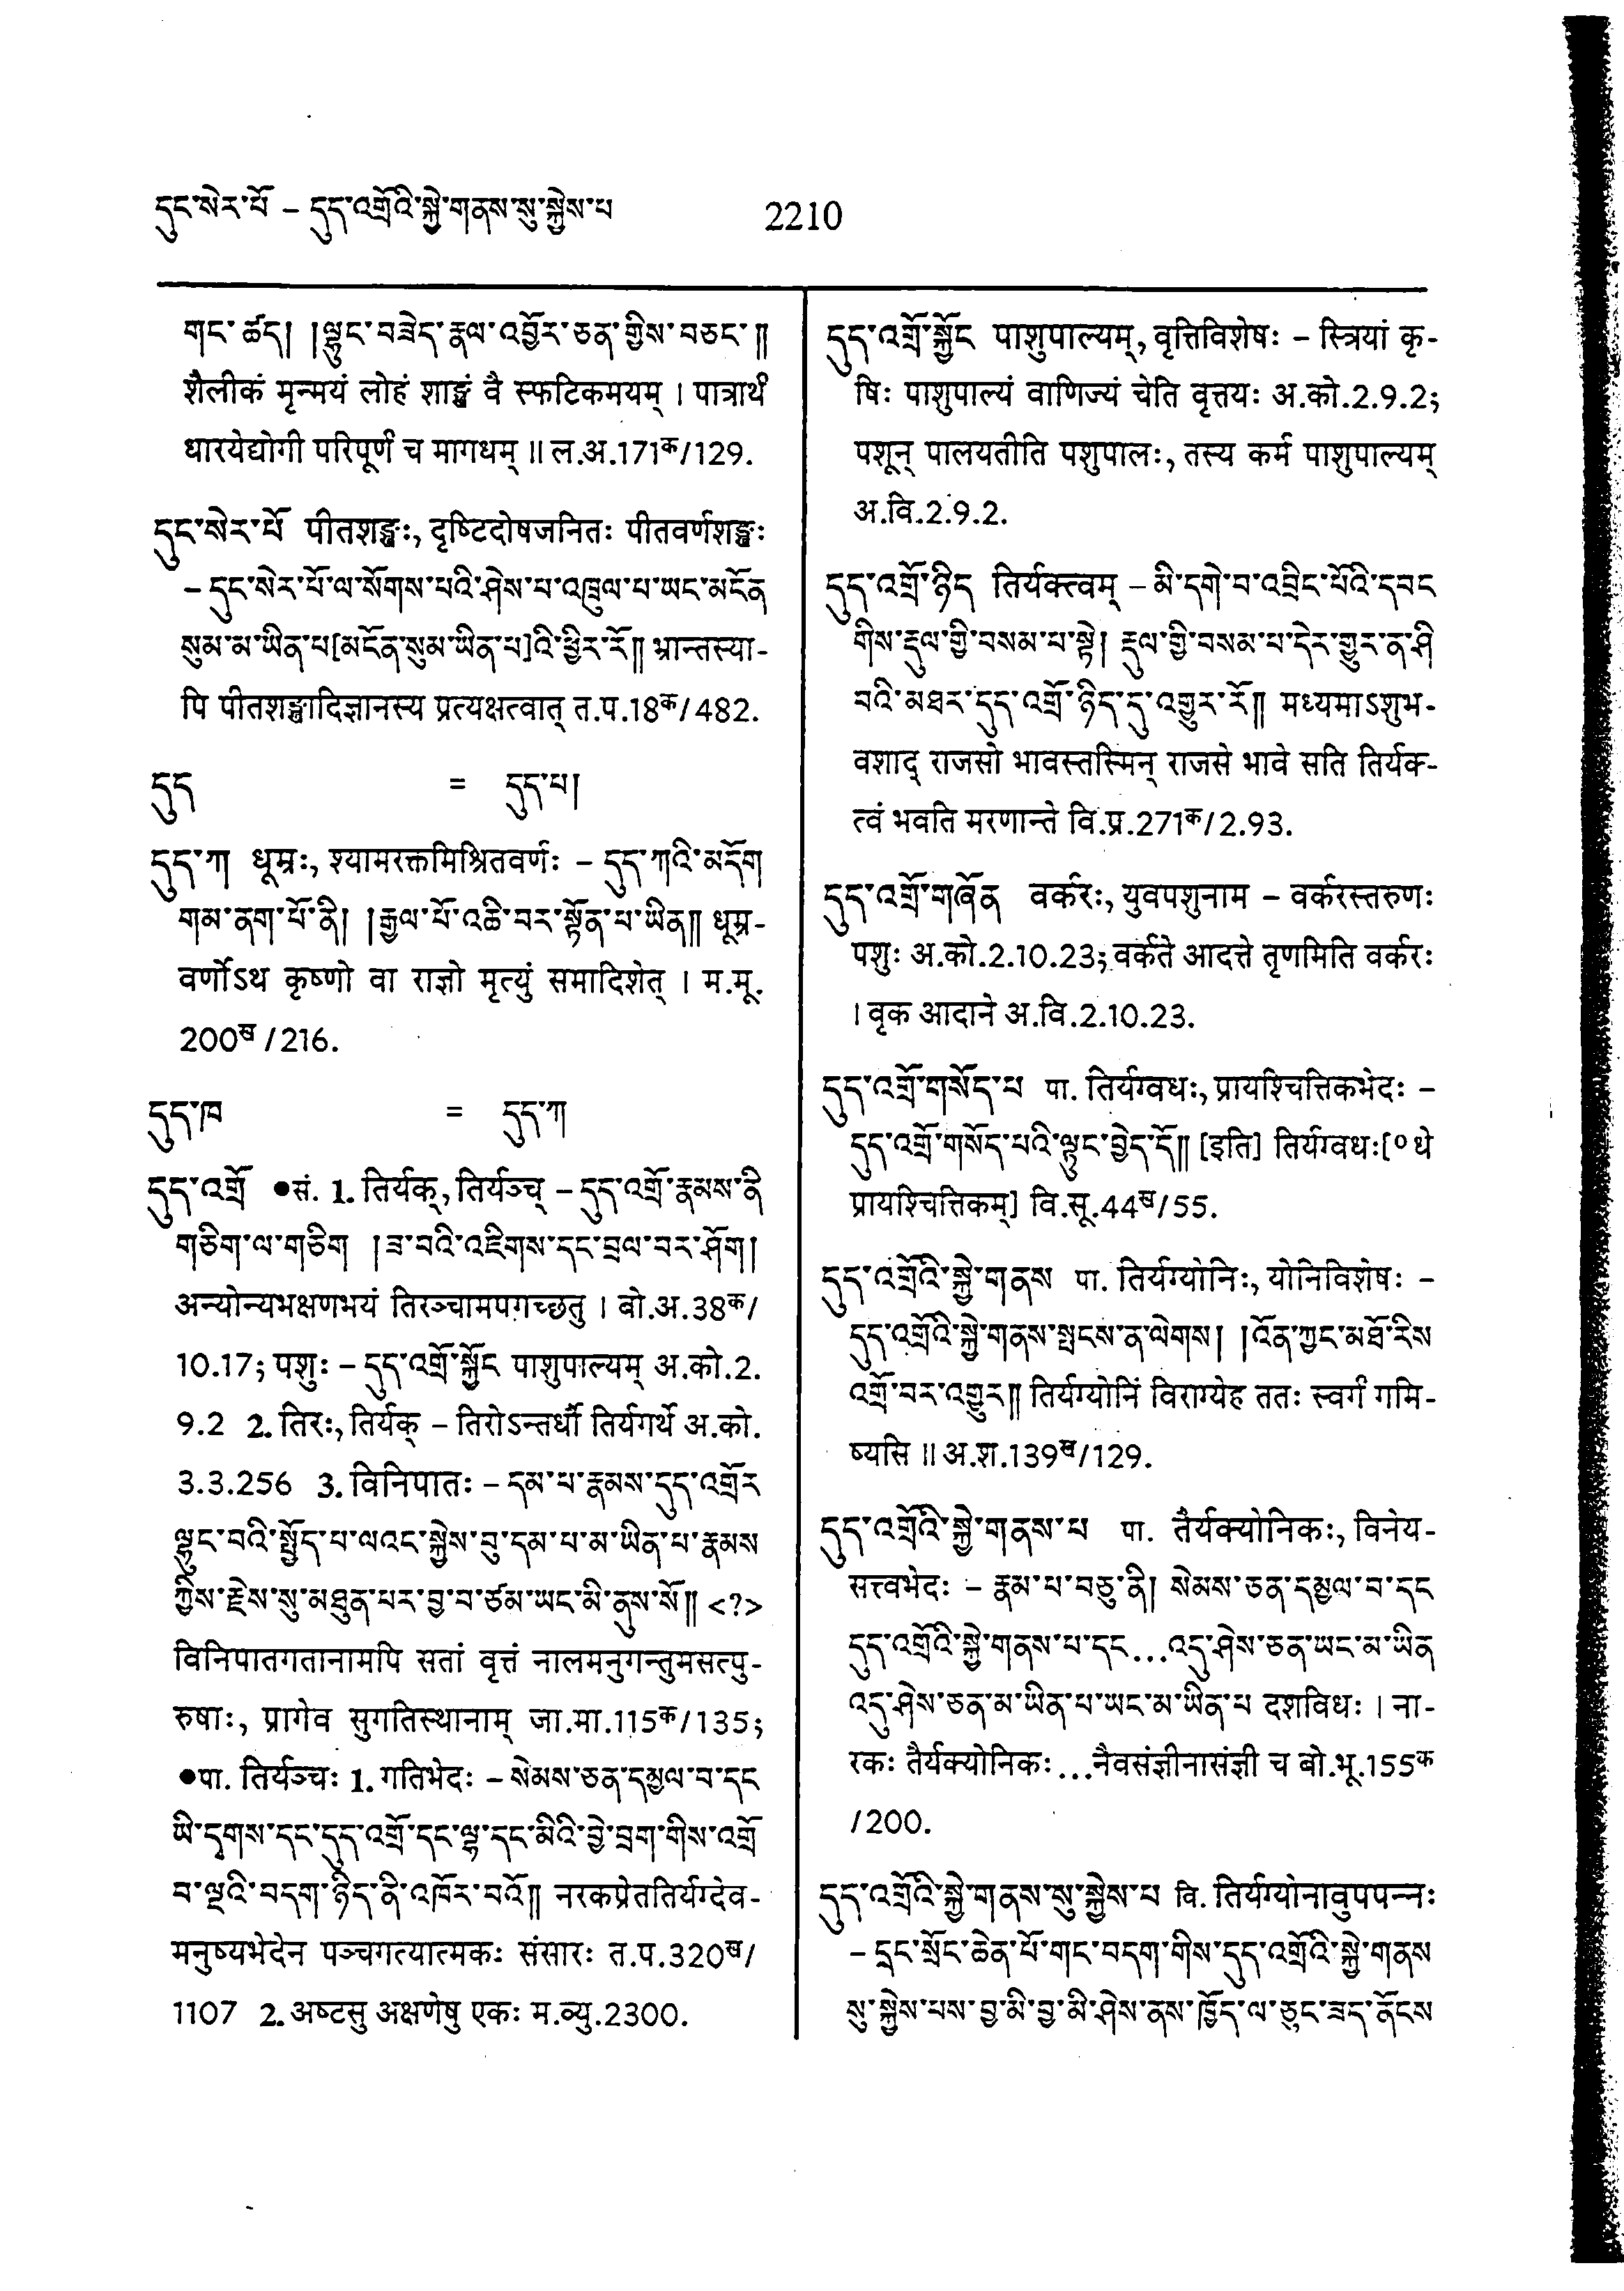 དུང་སེར་པོ – དུད་འགྲོའི་སྐྱེ་གནས་སུ་སྐྱེས་པ
2210
གང་ཚད། །ལྷུང་བཟེད་རྣལ་འབྱོར་ཅན་གྱིས་བཅང་༎
शैलीकं मृन्मयं लोहं शाङ्खं वै स्फटिकमयम् । पात्रार्थं
धारयेद्योगी परिपूर्णं च मागधम् ॥ ल.अ.171क/129.
དུང་སེར་པོ पीतशङ्खः, दृष्टिदोषजनितः पीतवर्णशङ्खः
– དུང་སེར་པོ་ལ་སོགས་པའི་ཤེས་པ་འཁྲུལ་པ་ཡང་མངོན
སུམ་མ་ཡིན་པ[མངོན་སུམ་ཡིན་པ]འི་ཕྱིར་རོ༎ भ्रान्तस्या-
पि पीतशङ्खादिज्ञानस्य प्रत्यक्षत्वात् त.प.18क/482.
དུད = དུད་པ།
དུད་ཀ धूम्रः, श्यामरक्तमिश्रितवर्णः – དུད་ཀའི་མདོག
གམ་ནག་པོ་ནི། །རྒྱལ་པོ་འཆི་བར་སྟོན་པ་ཡིན༎ धूम्र-
वर्णोऽथ कृष्णो वा राज्ञो मृत्युं समादिशेत् । म.मू.
200ख/216.
དུད་ཁ = དུད་ཀ
དུད་འགྲོ ●सं. 1. तिर्यक्, तिर्यञ्च् – དུད་འགྲོ་རྣམས་ནི
གཅིག་ལ་གཅིག །ཟ་བའི་འཇིགས་དང་བྲལ་བར་ཤོག།
अन्योन्यभक्षणभयं तिरञ्चामपगच्छतु । बो.अ.38क/
10.17; पशुः – དུད་འགྲོ་སྐྱོང पाशुपाल्यम् अ.को.2.
9.2 2. तिरः, तिर्यक् – तिरोऽन्तर्धौ तिर्यगर्थे अ.को.
3.3.256 3. विनिपातः – དམ་པ་རྣམས་དུད་འགྲོར
ལྷུང་བའི་སྤྱོད་པ་ལའང་སྐྱེས་བུ་དམ་པ་མ་ཡིན་པ་རྣམས
ཀྱིས་རྗེས་སུ་མཐུན་པར་བྱ་བ་ཙམ་ཡང་མི་ནུས་སོ༎ <?>
विनिपातगतानामपि सतां वृत्तं नालमनुगन्तुमसत्पु-
रुषाः, प्रागेव सुगतिस्थानाम् जा.मा.115क/135;
●पा. तिर्यञ्चः 1. गतिभेदः – སེམས་ཅན་དམྱལ་བ་དང
ཡི་དྭགས་དང་དུད་འགྲོ་དང་ལྷ་དང་མིའི་བྱེ་བྲག་གིས་འགྲོ
བ་ལྔའི་བདག་ཉིད་ནི་འཁོར་བའོ༎ नरकप्रेततिर्यग्देव-
मनुष्यभेदेन पञ्चगत्यात्मकः संसारः त.प.320ख/
1107 2. अष्टसु अक्षणेषु एकः म.व्यु.2300.
དུད་འགྲོ་སྐྱོང पाशुपाल्यम्, वृत्तिविशेषः – स्त्रियां कृ-
षिः पाशुपाल्यं वाणिज्यं चेति वृत्तयः अ.को.2.9.2;
पशून् पालयतीति पशुपालः, तस्य कर्म पाशुपाल्यम्
अ.वि.2.9.2.
དུད་འགྲོ་ཉིད तिर्यक्त्वम् – མི་དགེ་བ་འབྲིང་པོའི་དབང
གིས་རྡུལ་གྱི་བསམ་པ་སྟེ། རྡུལ་གྱི་བསམ་པ་དེར་གྱུར་ན་ཤི
བའི་མཐར་དུད་འགྲོ་ཉིད་དུ་འགྱུར་རོ༎ मध्यमाऽशुभ-
वशाद् राजसो भावस्तस्मिन् राजसे भावे सति तिर्यक-
त्वं भवति मरणान्ते वि.प्र.271क/2.93.
དུད་འགྲོ་གཞོན वर्करः, युवपशुनाम – वर्करस्तरुणः
पशुः अ.को.2.10.23; वर्कते आदत्ते तृणमिति वर्करः
। वृक आदाने अ.वि.2.10.23.
དུད་འགྲོ་གསོད་པ पा. तिर्यग्वधः, प्रायश्चित्तिकभेदः –
དུད་འགྲོ་གསོད་པའི་ལྟུང་བྱེད་དོ༎ [इति] तिर्यग्वधः[०धे
प्रायश्चित्तिकम्] वि.सू.44ख/55.
དུད་འགྲོའི་སྐྱེ་གནས पा. तिर्यग्योनिः, योनिविशेषः –
དུད་འགྲོའི་སྐྱེ་གནས་སྤངས་ན་ལེགས། །འོན་ཀྱང་མཐོ་རིས
འགྲོ་བར་འགྱུར༎ तिर्यग्योनिं विराग्येह ततः स्वर्गं गमि-
ष्यसि ॥ अ.श.139ख/129.
དུད་འགྲོའི་སྐྱེ་གནས་པ पा. तैर्यक्योनिकः, विनेय-
सत्त्वभेदः – རྣམ་པ་བཅུ་ནི། སེམས་ཅན་དམྱལ་བ་དང
དུད་འགྲོའི་སྐྱེ་གནས་པ་དང...འདུ་ཤེས་ཅན་ཡང་མ་ཡིན
འདུ་ཤེས་ཅན་མ་ཡིན་པ་ཡང་མ་ཡིན་པ दशविधः । ना-
रकः तैर्यक्योनिकः...नैवसंज्ञीनासंज्ञी च बो.भू.155क
/200.
དུད་འགྲོའི་སྐྱེ་གནས་སུ་སྐྱེས་པ वि. तिर्यग्योनावुपपन्नः
– དྲང་སྲོང་ཆེན་པོ་གང་བདག་གིས་དུད་འགྲོའི་སྐྱེ་གནས
སུ་སྐྱེས་པས་བྱ་མི་བྱ་མི་ཤེས་ནས་ཁྱོད་ལ་ཅུང་ཟད་ནོངས